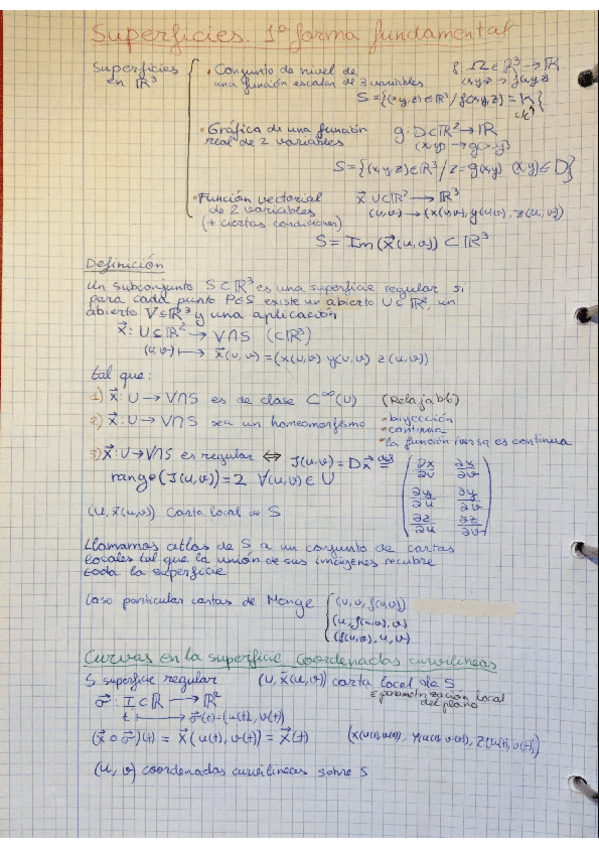 Superficies. 1ª forma fundamental
Superficies en ℝ³
• Conjunto de nivel de una función escalar de 3 variables
f: Ω⊂ℝ³ → ℝ
(x,y,z) → f(x,y,z)
S={(x,y,z)∈ℝ³ / f(x,y,z) = K}
• Gráfica de una función real de 2 variables
g: D⊂ℝ² → ℝ
(x,y) → g(x,y)
S={(x,y,z)∈ℝ³ / z=g(x,y) (x,y)∈D}
• Función vectorial de 2 variables (+ ciertas condiciones)
x⃗ U⊂ℝ² → ℝ³
(u,v) → (x(u,v), y(u,v), z(u,v))
S = Im(x⃗(u,v)) ⊂ ℝ³
Definición
Un subconjunto S⊂ℝ³ es una superficie regular si
para cada punto P∈S existe un abierto U⊆ℝ², un
abierto V⊆ℝ³ y una aplicación
x⃗: U⊆ℝ² → V∩S (⊂ℝ³)
(u,v) ↦ x⃗(u,v) = (x(u,v) y(u,v) z(u,v))
tal que:
1) x⃗: U → V∩S es de clase C^∞(U) (Relajable)
2) x⃗: U → V∩S sea un homeomorfismo
• biyección
• continua
• la función inversa es continua
3) x⃗: U → V∩S es regular ⇔ J(u,v) = Dx⃗ = (∂x/∂u ∂x/∂v
∂y/∂u ∂y/∂v
∂z/∂u ∂z/∂v)
rango(J(u,v)) = 2 ∀(u,v)∈U
(U, x⃗(u,v)) carta local de S
Llamamos atlas de S a un conjunto de cartas
locales tal que la unión de sus imágenes recubre
toda la superficie
Caso particular cartas de Monge
(u,v,f(u,v))
(u,f(u,v),v)
(f(u,v),u,v)
Curvas en la superficie. Coordenadas curvilíneas
S superficie regular (U, x⃗(u,v)) carta local de S
≡ parametrización local del plano
σ⃗: I⊂ℝ → ℝ²
t → σ⃗(t) = (u(t), v(t))
(x⃗∘σ⃗)(t) = x⃗(u(t), v(t)) = x⃗(t)
(u,v) coordenadas curvilíneas sobre S